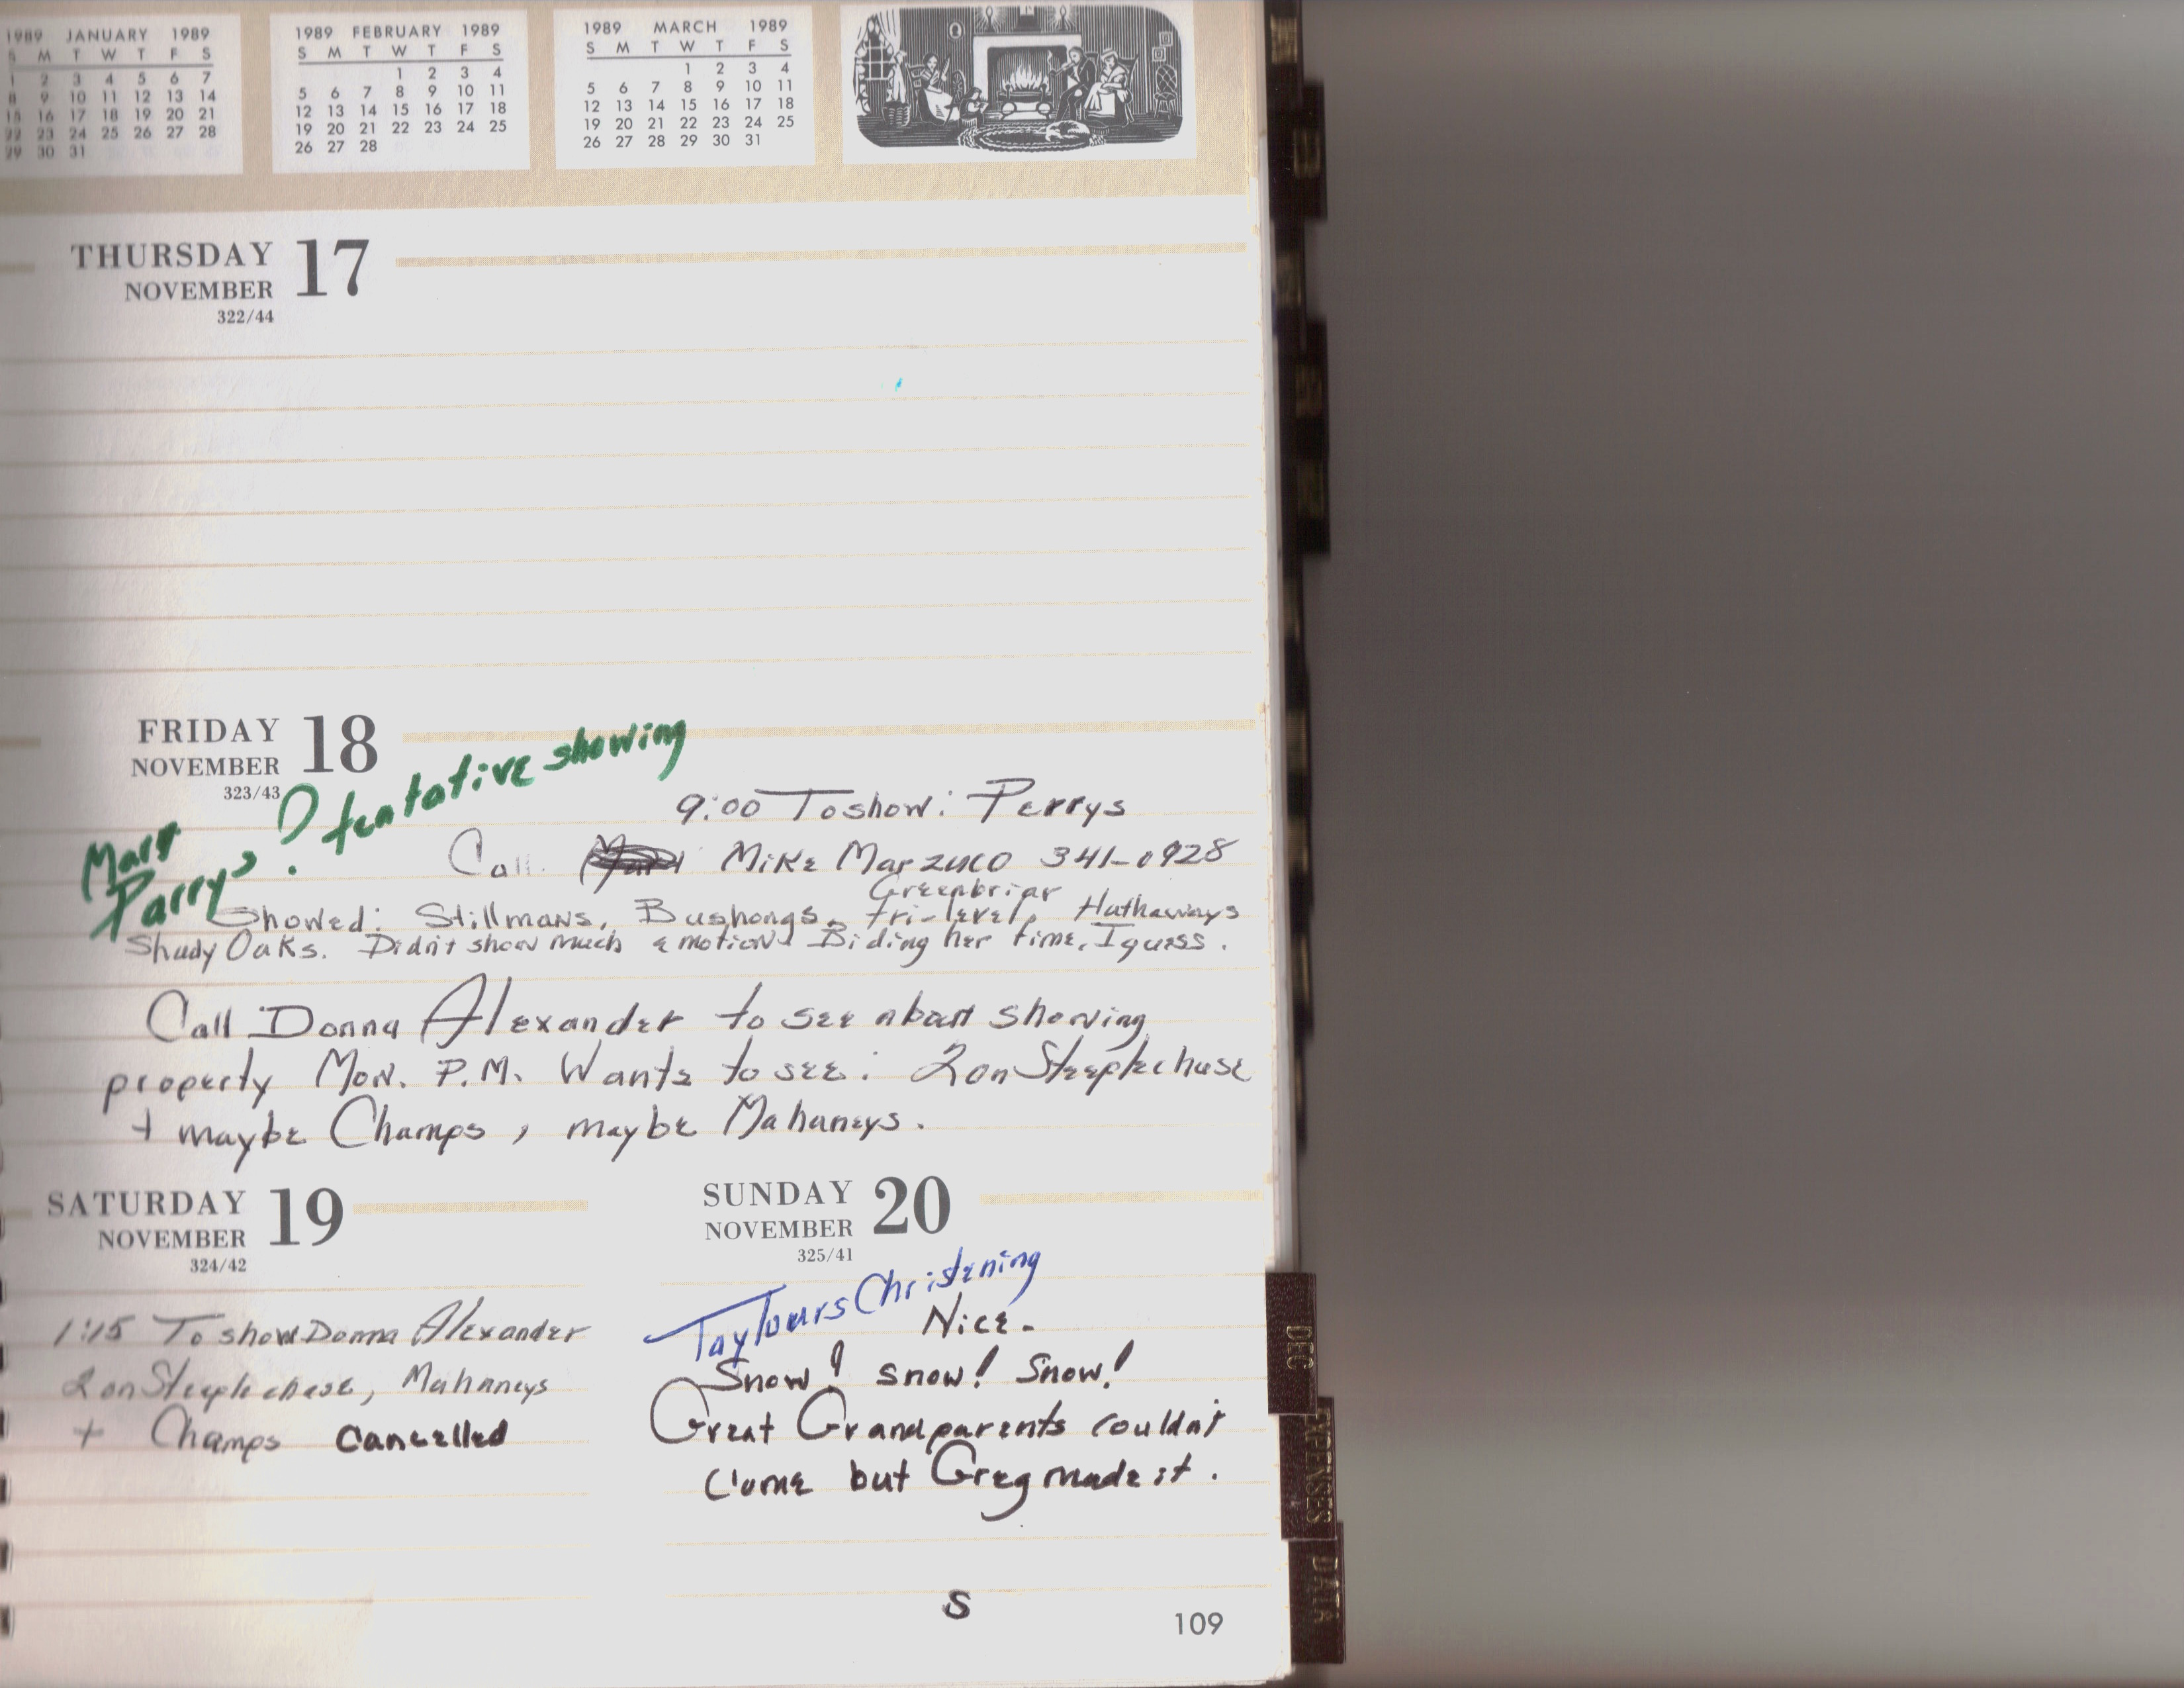 1989 JANUARY 1989
S M T W T F S
1 2 3 4 5 6 7
8 9 10 11 12 13 14
15 16 17 18 19 20 21
22 23 24 25 26 27 28
29 30 31
1989 FEBRUARY 1989
S M T W T F S
1 2 3 4
5 6 7 8 9 10 11
12 13 14 15 16 17 18
19 20 21 22 23 24 25
26 27 28
1989 MARCH 1989
S M T W T F S
1 2 3 4
5 6 7 8 9 10 11
12 13 14 15 16 17 18
19 20 21 22 23 24 25
26 27 28 29 30 31
THURSDAY 17
NOVEMBER
322/44
FRIDAY 18
NOVEMBER
323/43
Mary
Parrys ? tentative showing
9:00 To show: Perrys
Call Mike Marzuco 341-0928
Greenbriar
Showed: Stillmans, Bushongs, tri-level, Hathaways
Shady Oaks. Didn't show much emotion. Biding her time, I guess.
Call Donna Alexander to see about showing
property Mon. P.M. Wants to see: 2 on Steeplechase
+ maybe Champs, maybe Mahaneys.
SATURDAY 19
NOVEMBER
324/42
1:15 To show Donna Alexander
2 on Steeplechase, Mahaneys
+ Champs Cancelled
SUNDAY 20
NOVEMBER
325/41
Taylours Christening
Nice.
Snow! snow! Snow!
Great Grandparents couldn't
come but Greg made it.
S
109
DEC
EXPENSES
DATA